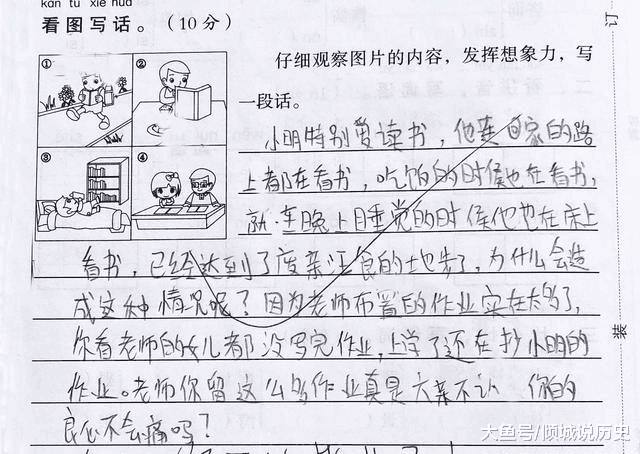 kàn tú xiě huà
看图写话。（10分）
①
②
③
④
仔细观察图片的内容，发挥想象力，写
一段话。
小明特别爱读书，他连回家的路
上都在看书，吃饭的时候也在看书，
就连晚上目垂觉的时候他也在床上
看书，已经达到了废亲汪食的地步了，为什么会造
成这种情况呢？因为老师布置的作业实在太多了，
你看老师的女儿都没写完作业，上学了还在抄小明的
作业。老师你留这么多作业真是六亲不认 你的
良心不会痛吗？
订
装
大鱼号/倾城说历史